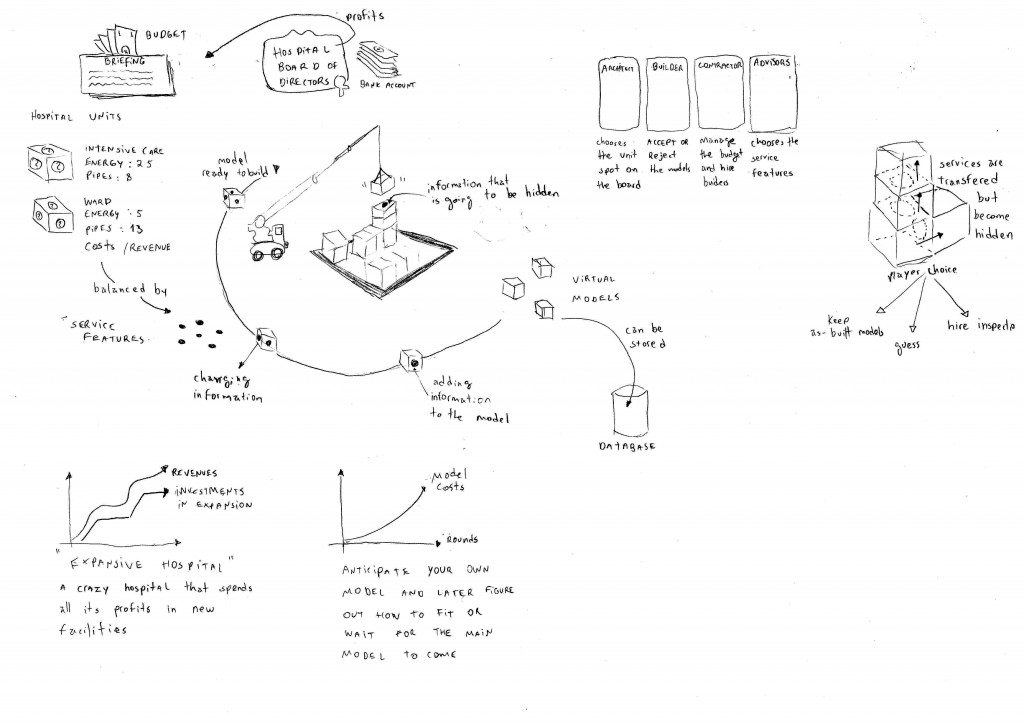 profits
BUDGET
BRIEFING
HOSPITAL
BOARD OF
DIRECTORS
BANK ACCOUNT
HOSPITAL UNITS
INTENSIVE CARE
ENERGY : 25
PIPES : 8
WARD
ENERGY : 5
PIPES : 13
COSTS / REVENUE
balanced by
"SERVICE
FEATURES
model
ready to build
information that
is going to be hidden
changing
information
adding
information
to the model
VIRTUAL
MODELS
can be
stored
DATABASE
ARCHITECT
BUILDER
CONTRACTOR
ADVISORS
chooses
the unit
spot on
the board
ACCEPT OR
Reject
the models
Manage
the budget
and hire
builders
chooses the
service
features
services are
transfered
but
become
hidden
player choice
Keep
as-built models
guess
hire inspects
REVENUES
INVESTMENTS
IN EXPANSION
"EXPANSIVE HOSPITAL"
A crazy hospital that spends
all its profits in new
facilities
Model
costs
Rounds
ANTICIPATE YOUR OWN
MODEL AND LATER FIGURE
OUT HOW TO FIT OR
WAIT FOR THE MAIN
MODEL TO COME